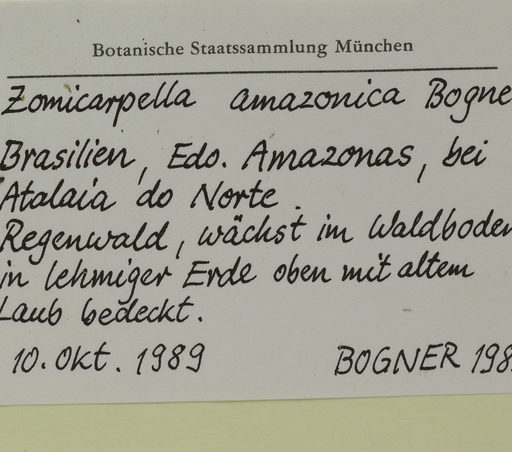 Botanische Staatssammlung München
Zomicarpella amazonica Bogne
Brasilien, Edo. Amazonas, bei
Atalaia do Norte.
Regenwald, wächst im Waldboden
in lehmiger Erde oben mit altem
Laub bedeckt.
10. Okt. 1989 BOGNER 198